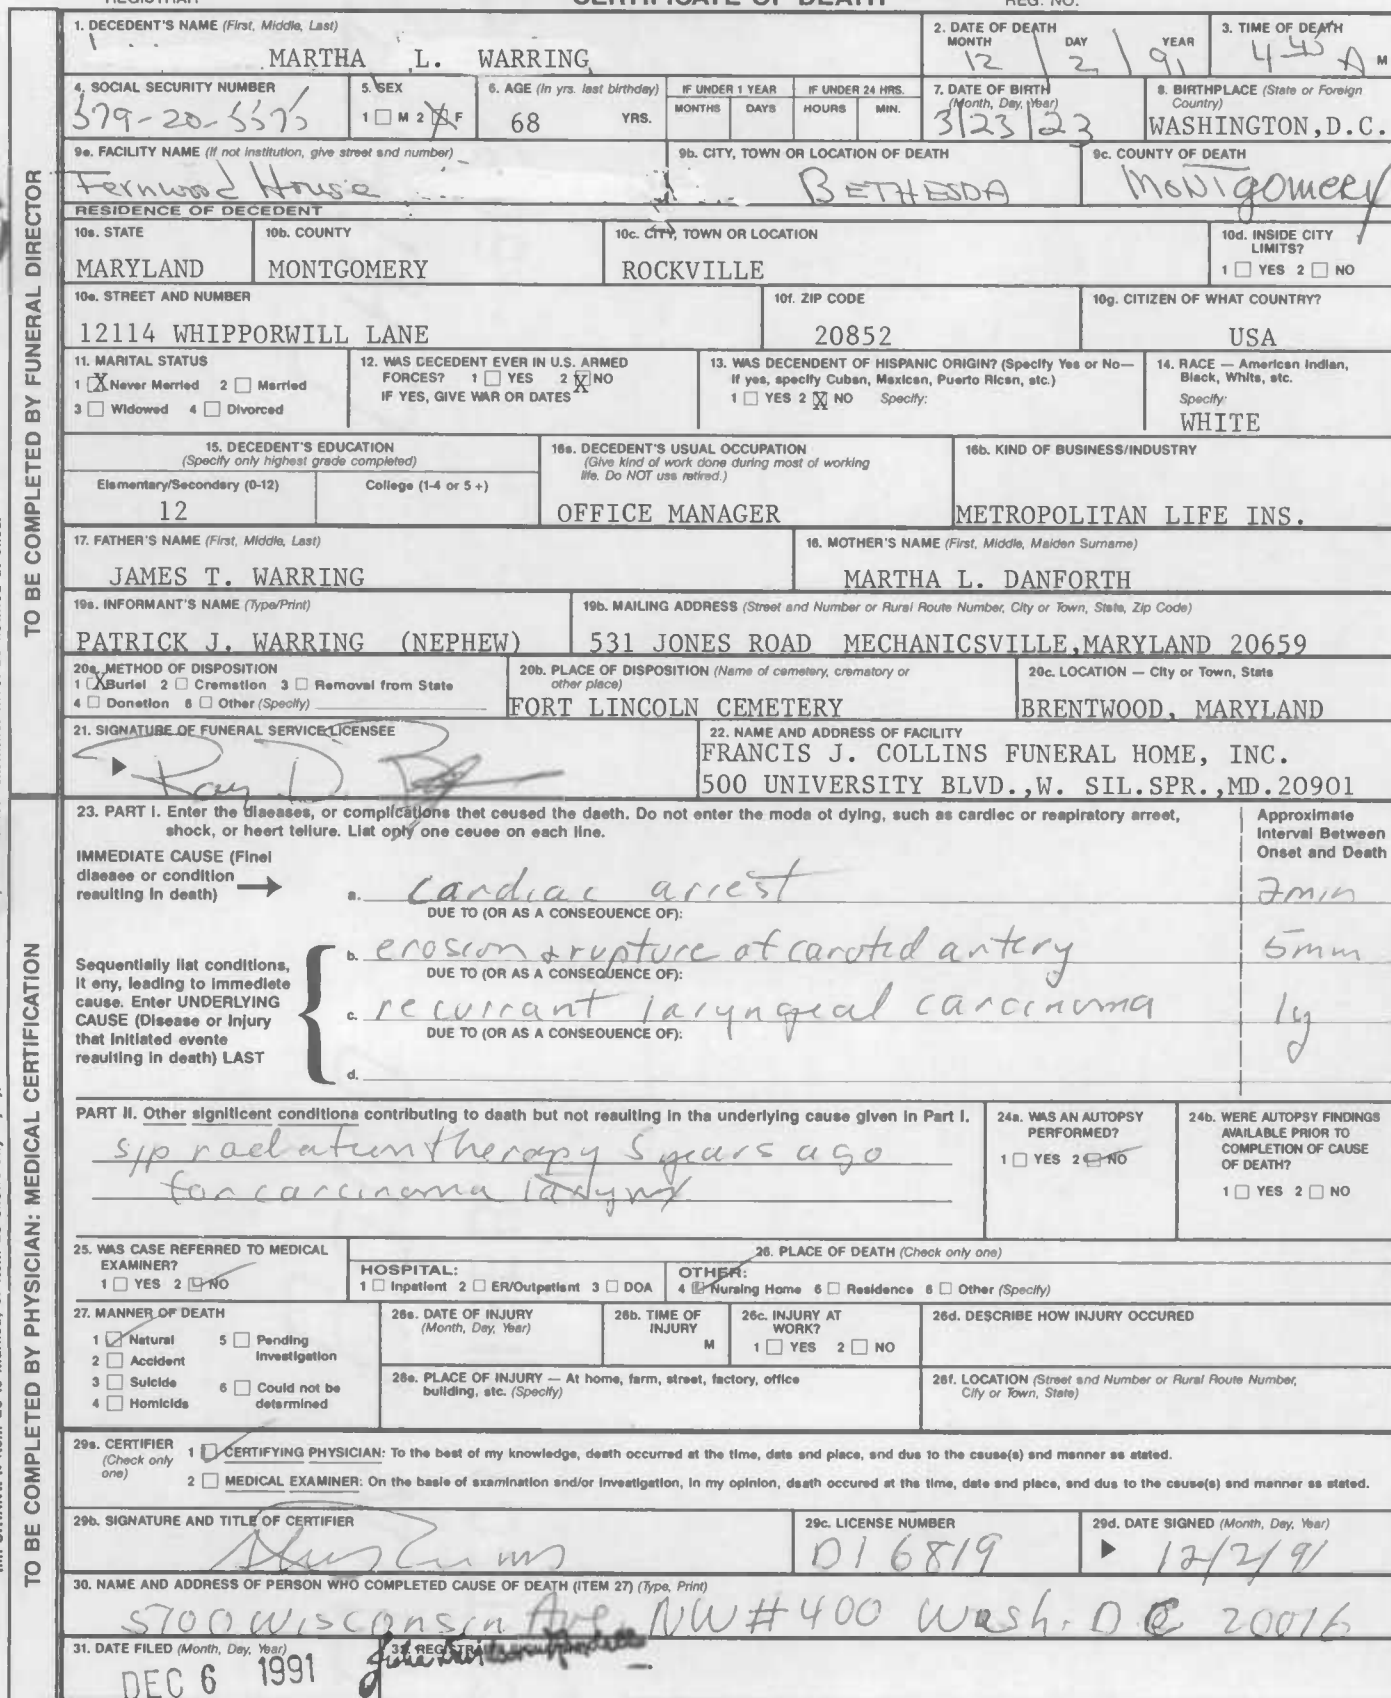 REGISTRAR CERTIFICATE OF DEATH REG. NO.
1. DECEDENT'S NAME (First, Middle, Last)
MARTHA L. WARRING
2. DATE OF DEATH
MONTH DAY YEAR
12 2 91
3. TIME OF DEATH
4 40 A M
4. SOCIAL SECURITY NUMBER
5. SEX
1 M 2 X F
6. AGE (In yrs. last birthday)
68 YRS.
IF UNDER 1 YEAR
MONTHS DAYS
IF UNDER 24 HRS.
HOURS MIN.
7. DATE OF BIRTH
(Month, Day, Year)
3/23/23
8. BIRTHPLACE (State or Foreign
Country)
WASHINGTON,D.C.
9a. FACILITY NAME (If not institution, give street and number)
Fernwood House
9b. CITY, TOWN OR LOCATION OF DEATH
BETHESDA
9c. COUNTY OF DEATH
MONTgomery
RESIDENCE OF DECEDENT
10a. STATE
MARYLAND
10b. COUNTY
MONTGOMERY
10c. CITY, TOWN OR LOCATION
ROCKVILLE
10d. INSIDE CITY
LIMITS?
1 YES 2 NO
10e. STREET AND NUMBER
12114 WHIPPORWILL LANE
10f. ZIP CODE
20852
10g. CITIZEN OF WHAT COUNTRY?
USA
11. MARITAL STATUS
1 X Never Married 2 Married
3 Widowed 4 Divorced
12. WAS DECEDENT EVER IN U.S. ARMED
FORCES? 1 YES 2 X NO
IF YES, GIVE WAR OR DATES
13. WAS DECENDENT OF HISPANIC ORIGIN? (Specify Yes or No—
If yes, specify Cuban, Mexican, Puerto Rican, etc.)
1 YES 2 X NO Specify:
14. RACE — American Indian,
Black, White, etc.
Specify:
WHITE
15. DECEDENT'S EDUCATION
(Specify only highest grade completed)
Elementary/Secondary (0-12) College (1-4 or 5 +)
12
16a. DECEDENT'S USUAL OCCUPATION
(Give kind of work done during most of working
life. Do NOT use retired.)
OFFICE MANAGER
16b. KIND OF BUSINESS/INDUSTRY
METROPOLITAN LIFE INS.
17. FATHER'S NAME (First, Middle, Last)
JAMES T. WARRING
18. MOTHER'S NAME (First, Middle, Maiden Surname)
MARTHA L. DANFORTH
19a. INFORMANT'S NAME (Type/Print)
PATRICK J. WARRING (NEPHEW)
19b. MAILING ADDRESS (Street and Number or Rural Route Number, City or Town, State, Zip Code)
531 JONES ROAD MECHANICSVILLE,MARYLAND 20659
20a. METHOD OF DISPOSITION
1 X Burial 2 Cremation 3 Removal from State
4 Donation 5 Other (Specify)
20b. PLACE OF DISPOSITION (Name of cemetery, crematory or
other place)
FORT LINCOLN CEMETERY
20c. LOCATION — City or Town, State
BRENTWOOD, MARYLAND
21. SIGNATURE OF FUNERAL SERVICE LICENSEE
Ray D.
22. NAME AND ADDRESS OF FACILITY
FRANCIS J. COLLINS FUNERAL HOME, INC.
500 UNIVERSITY BLVD.,W. SIL.SPR.,MD.20901
TO BE COMPLETED BY FUNERAL DIRECTOR
23. PART I. Enter the diseases, or complications that caused the death. Do not enter the mode of dying, such as cardiac or respiratory arrest,
shock, or heart failure. List only one cause on each line.
Approximate
Interval Between
Onset and Death
IMMEDIATE CAUSE (Final
disease or condition
resulting in death)
a. cardiac arrest 2min
DUE TO (OR AS A CONSEQUENCE OF):
b. erosion & rupture of carotid artery 5min
DUE TO (OR AS A CONSEQUENCE OF):
c. recurrant laryngeal carcinoma 1y
DUE TO (OR AS A CONSEQUENCE OF):
d.
Sequentially list conditions,
if any, leading to immediate
cause. Enter UNDERLYING
CAUSE (Disease or Injury
that initiated events
resulting in death) LAST
PART II. Other significant conditions contributing to death but not resulting in the underlying cause given in Part I.
s/p radiation therapy 5 years ago
for carcinoma larynx
24a. WAS AN AUTOPSY
PERFORMED?
1 YES 2 NO
24b. WERE AUTOPSY FINDINGS
AVAILABLE PRIOR TO
COMPLETION OF CAUSE
OF DEATH?
1 YES 2 NO
25. WAS CASE REFERRED TO MEDICAL
EXAMINER?
1 YES 2 NO
26. PLACE OF DEATH (Check only one)
HOSPITAL:
1 Inpatient 2 ER/Outpatient 3 DOA
OTHER:
4 Nursing Home 5 Residence 6 Other (Specify)
27. MANNER OF DEATH
1 Natural 5 Pending
Investigation
2 Accident
3 Suicide 6 Could not be
4 Homicide determined
28a. DATE OF INJURY
(Month, Day, Year)
28b. TIME OF
INJURY
M
28c. INJURY AT
WORK?
1 YES 2 NO
28d. DESCRIBE HOW INJURY OCCURED
28e. PLACE OF INJURY — At home, farm, street, factory, office
building, etc. (Specify)
28f. LOCATION (Street and Number or Rural Route Number,
City or Town, State)
29a. CERTIFIER
(Check only
one)
1 CERTIFYING PHYSICIAN: To the best of my knowledge, death occurred at the time, date and place, and due to the cause(s) and manner as stated.
2 MEDICAL EXAMINER: On the basis of examination and/or investigation, in my opinion, death occured at the time, date and place, and due to the cause(s) and manner as stated.
29b. SIGNATURE AND TITLE OF CERTIFIER
29c. LICENSE NUMBER
D16819
29d. DATE SIGNED (Month, Day, Year)
12/2/91
30. NAME AND ADDRESS OF PERSON WHO COMPLETED CAUSE OF DEATH (ITEM 27) (Type, Print)
5700 Wisconsin Ave NW #400 Wash. DC 20016
31. DATE FILED (Month, Day, Year)
DEC 6 1991
TO BE COMPLETED BY PHYSICIAN: MEDICAL CERTIFICATION